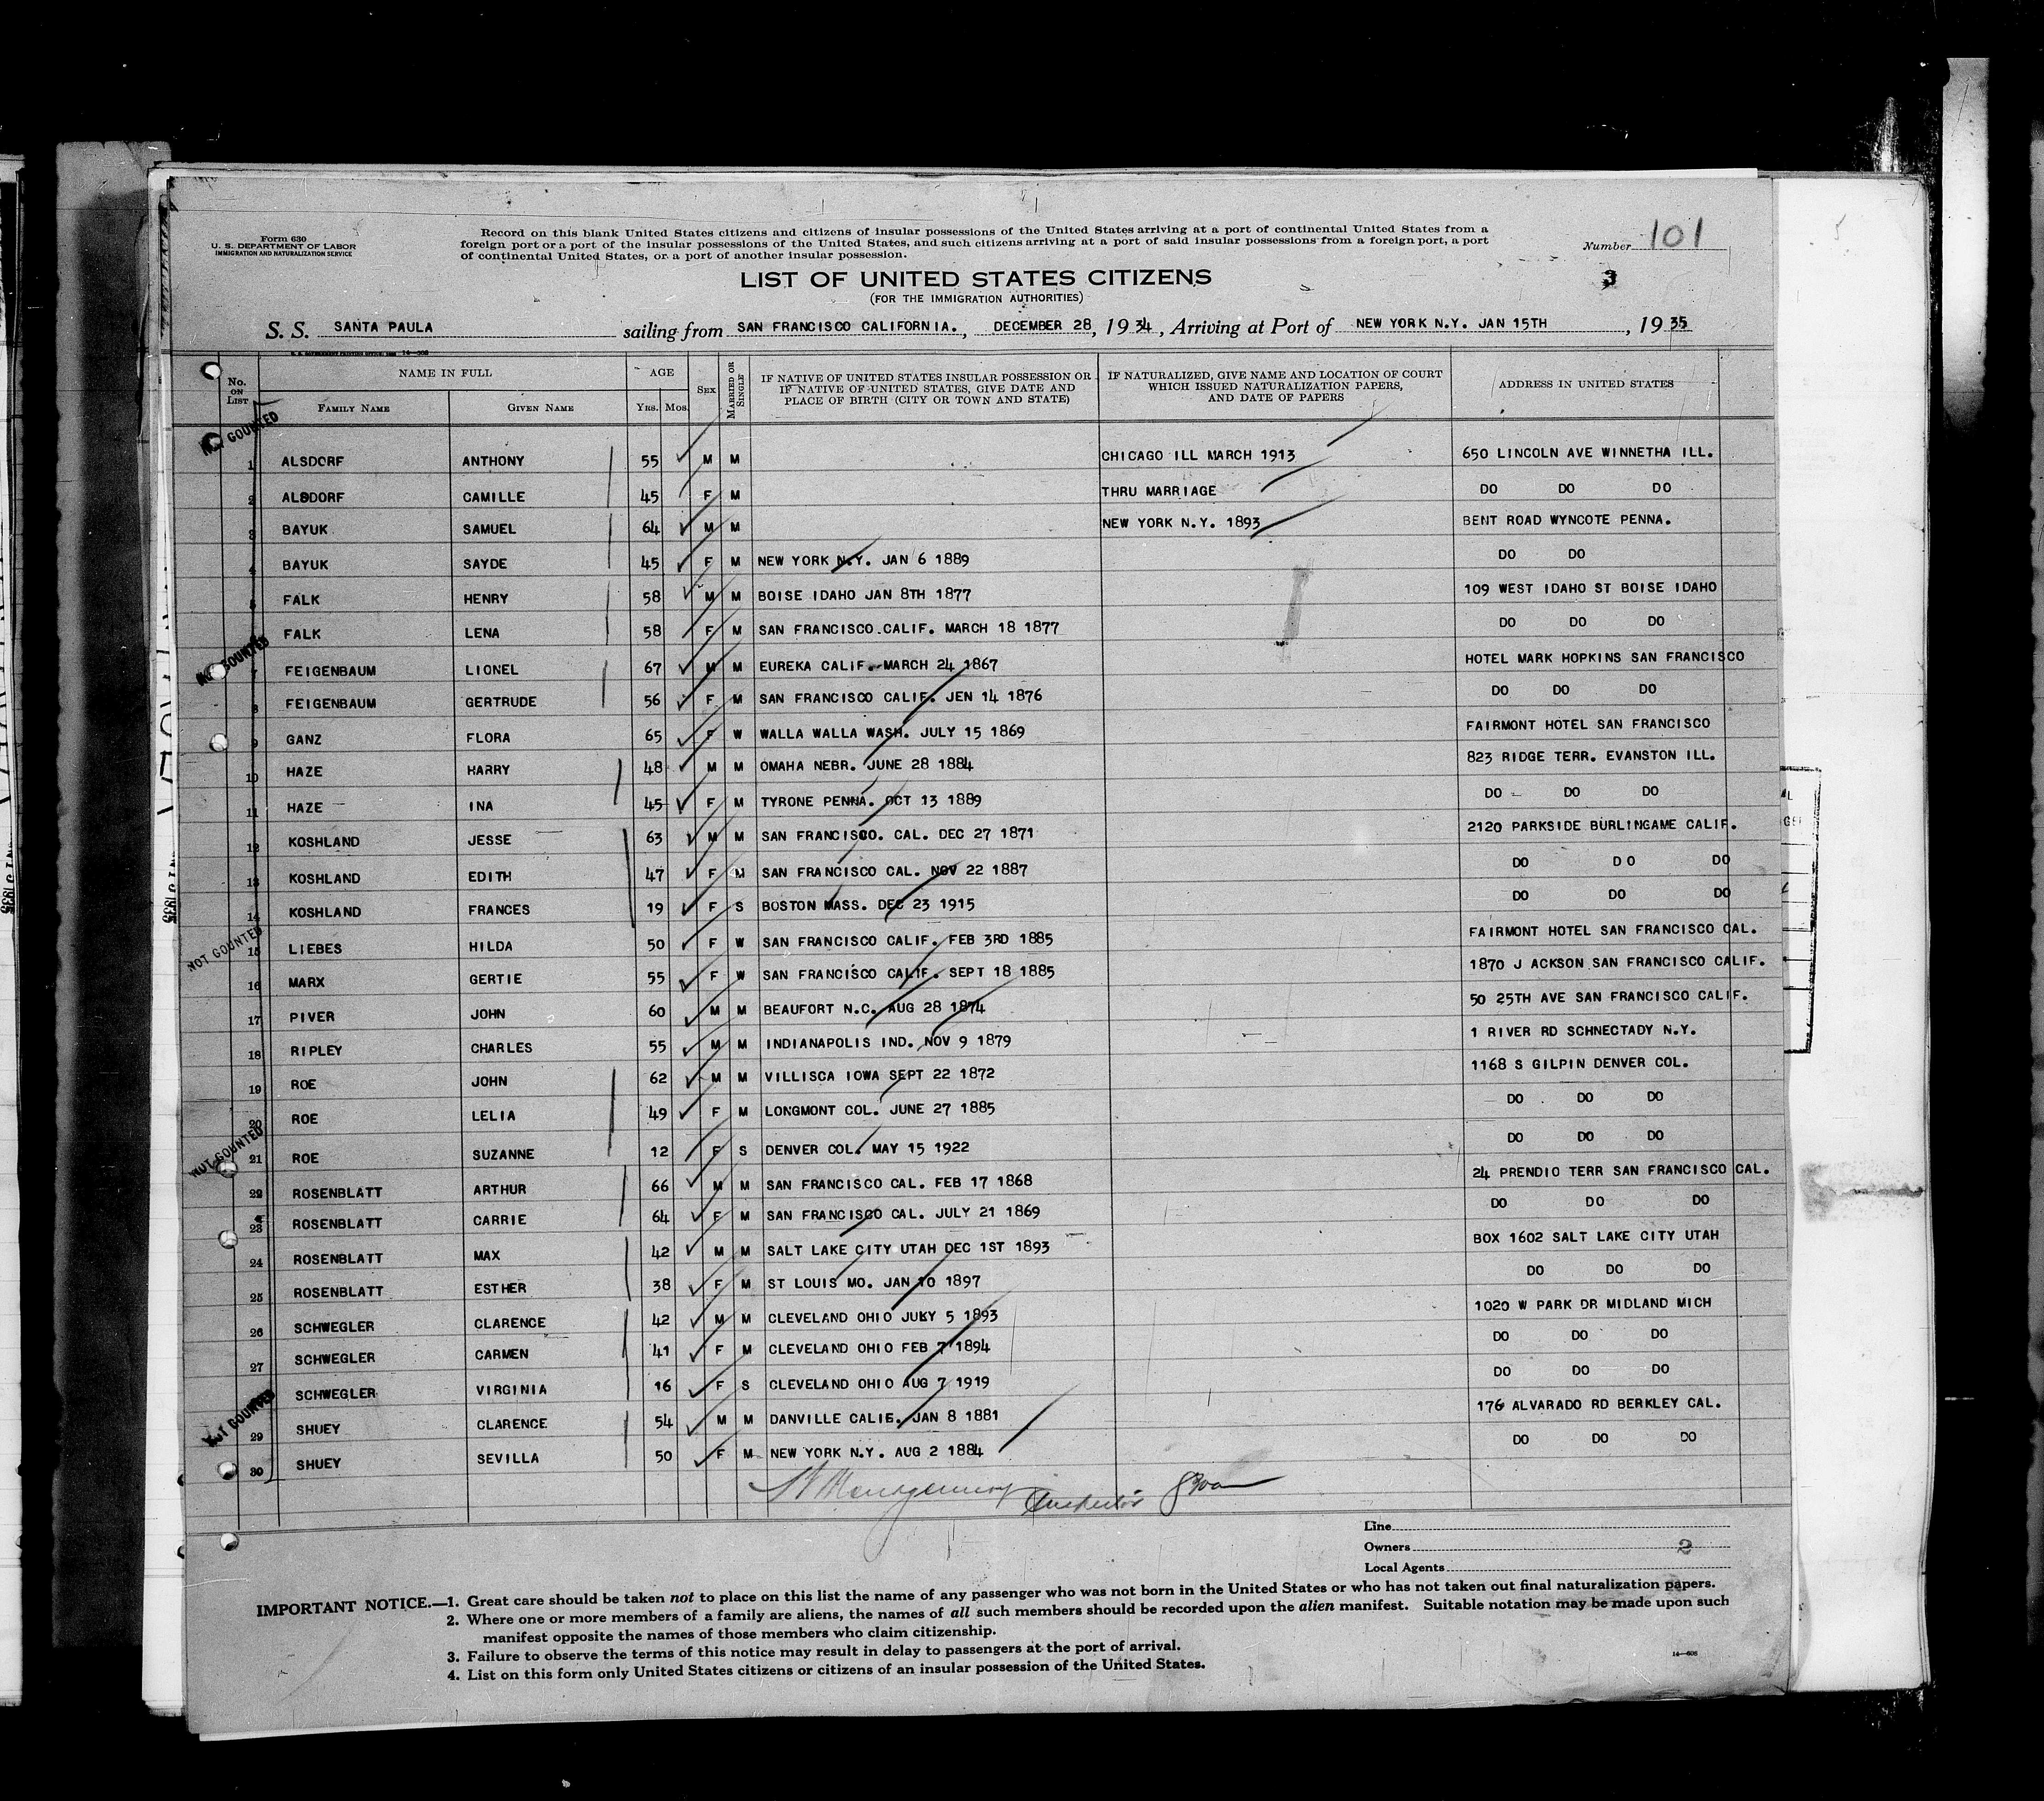 Form 630
U. S. DEPARTMENT OF LABOR
IMMIGRATION AND NATURALIZATION SERVICE
Record on this blank United States citizens and citizens of insular possessions of the United States arriving at a port of continental United States from a
foreign port or a port of the insular possessions of the United States, and such citizens arriving at a port of said insular possessions from a foreign port, a port
of continental United States, or a port of another insular possession.
Number 101
LIST OF UNITED STATES CITIZENS
3
(FOR THE IMMIGRATION AUTHORITIES)
S. S. SANTA PAULA sailing from SAN FRANCISCO CALIFORNIA., DECEMBER 28, 1934, Arriving at Port of NEW YORK N.Y. JAN 15TH, 1935
No. ON LIST NAME IN FULL AGE SEX MARRIED OR SINGLE IF NATIVE OF UNITED STATES INSULAR POSSESSION OR IF NATIVE OF UNITED STATES, GIVE DATE AND PLACE OF BIRTH (CITY OR TOWN AND STATE) IF NATURALIZED, GIVE NAME AND LOCATION OF COURT WHICH ISSUED NATURALIZATION PAPERS, AND DATE OF PAPERS ADDRESS IN UNITED STATES
FAMILY NAME GIVEN NAME YRS. MOS.
NOT COUNTED
1 ALSDORF ANTHONY 55 M M CHICAGO ILL MARCH 1913 650 LINCOLN AVE WINNETHA ILL.
2 ALSDORF CAMILLE 45 F M THRU MARRIAGE DO DO DO
3 BAYUK SAMUEL 64 M M NEW YORK N.Y. 1893 BENT ROAD WYNCOTE PENNA.
4 BAYUK SAYDE 45 F M NEW YORK N.Y. JAN 6 1889 DO DO
5 FALK HENRY 58 M M BOISE IDAHO JAN 8TH 1877 109 WEST IDAHO ST BOISE IDAHO
FALK LENA 58 F M SAN FRANCISCO.CALIF. MARCH 18 1877 DO DO DO
NOT COUNTED
7 FEIGENBAUM LIONEL 67 M M EUREKA CALIF. MARCH 24 1867 HOTEL MARK HOPKINS SAN FRANCISCO
8 FEIGENBAUM GERTRUDE 56 F M SAN FRANCISCO CALIF. JEN 14 1876 DO DO DO
9 GANZ FLORA 65 F W WALLA WALLA WASH. JULY 15 1869 FAIRMONT HOTEL SAN FRANCISCO
10 HAZE HARRY 48 M M OMAHA NEBR. JUNE 28 1884 823 RIDGE TERR. EVANSTON ILL.
11 HAZE INA 45 F M TYRONE PENNA. OCT 13 1889 DO DO DO
12 KOSHLAND JESSE 63 M M SAN FRANCISCO. CAL. DEC 27 1871 2120 PARKSIDE BURLINGAME CALIF.
13 KOSHLAND EDITH 47 F M SAN FRANCISCO CAL. NOV 22 1887 DO DO DO
14 KOSHLAND FRANCES 19 F S BOSTON MASS. DEC 23 1915 DO DO DO
NOT COUNTED
15 LIEBES HILDA 50 F W SAN FRANCISCO CALIF. FEB 3RD 1885 FAIRMONT HOTEL SAN FRANCISCO CAL.
16 MARX GERTIE 55 F W SAN FRANCISCO CALIF. SEPT 18 1885 1870 J ACKSON SAN FRANCISCO CALIF.
17 PIVER JOHN 60 M M BEAUFORT N.C. AUG 28 1874 50 25TH AVE SAN FRANCISCO CALIF.
18 RIPLEY CHARLES 55 M M INDIANAPOLIS IND. NOV 9 1879 1 RIVER RD SCHNECTADY N.Y.
19 ROE JOHN 62 M M VILLISCA IOWA SEPT 22 1872 1168 S GILPIN DENVER COL.
20 ROE LELIA 49 F M LONGMONT COL. JUNE 27 1885 DO DO DO
NOT COUNTED
21 ROE SUZANNE 12 F S DENVER COL. MAY 15 1922 DO DO DO
22 ROSENBLATT ARTHUR 66 M M SAN FRANCISCO CAL. FEB 17 1868 24 PRENDIO TERR SAN FRANCISCO CAL.
23 ROSENBLATT CARRIE 64 F M SAN FRANCISCO CAL. JULY 21 1869 DO DO DO
24 ROSENBLATT MAX 42 M M SALT LAKE CITY UTAH DEC 1ST 1893 BOX 1602 SALT LAKE CITY UTAH
25 ROSENBLATT ESTHER 38 F M ST LOUIS MO. JAN 10 1897 DO DO DO
26 SCHWEGLER CLARENCE 42 M M CLEVELAND OHIO JULY 5 1893 1020 W PARK DR MIDLAND MICH
27 SCHWEGLER CARMEN 41 F M CLEVELAND OHIO FEB 7 1894 DO DO DO
SCHWEGLER VIRGINIA 16 F S CLEVELAND OHIO AUG 7 1919 DO DO DO
NOT COUNTED
29 SHUEY CLARENCE 54 M M DANVILLE CALIF. JAN 8 1881 176 ALVARADO RD BERKLEY CAL.
30 SHUEY SEVILLA 50 F M NEW YORK N.Y. AUG 2 1884 DO DO DO
Inspector
Line
Owners 2
Local Agents
IMPORTANT NOTICE.—1. Great care should be taken not to place on this list the name of any passenger who was not born in the United States or who has not taken out final naturalization papers.
2. Where one or more members of a family are aliens, the names of all such members should be recorded upon the alien manifest. Suitable notation may be made upon such
manifest opposite the names of those members who claim citizenship.
3. Failure to observe the terms of this notice may result in delay to passengers at the port of arrival.
4. List on this form only United States citizens or citizens of an insular possession of the United States.
14—606